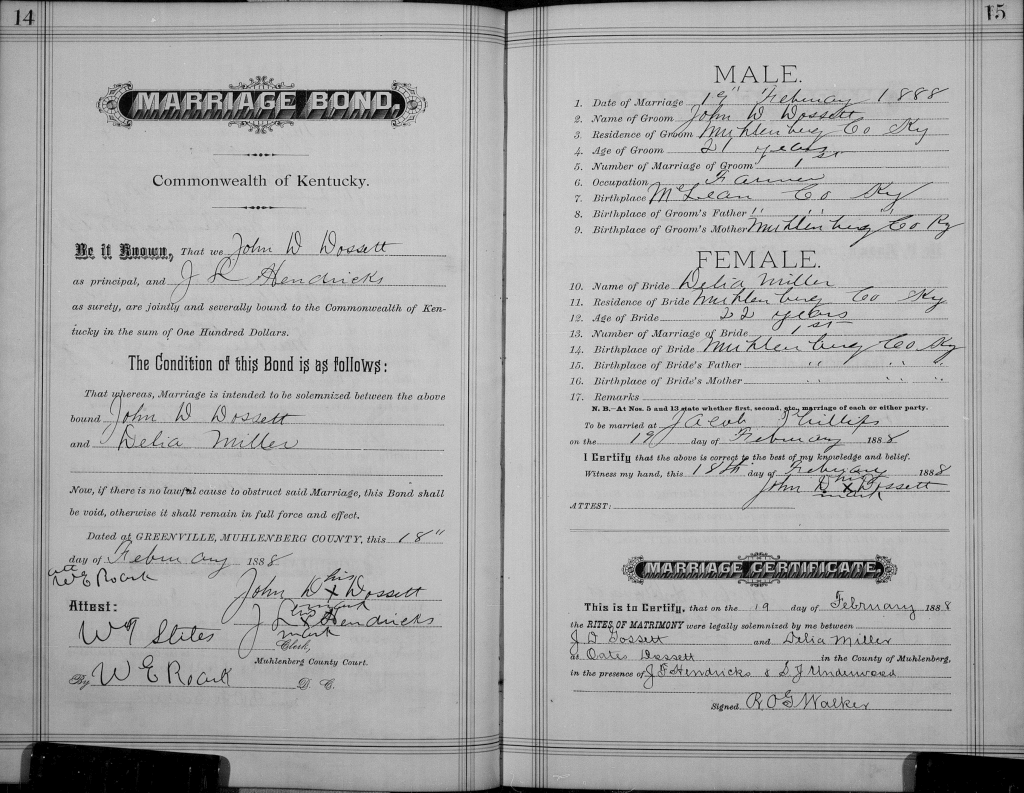 14
MARRIAGE BOND,
Commonwealth of Kentucky.
Be it Known, That we John D Dossett
as principal, and J L Hendricks
as surety, are jointly and severally bound to the Commonwealth of Ken-
tucky in the sum of One Hundred Dollars.
The Condition of this Bond is as follows:
That whereas, Marriage is intended to be solemnized between the above
bound John D Dossett
and Delia Miller
Now, if there is no lawful cause to obstruct said Marriage, this Bond shall
be void, otherwise it shall remain in full force and effect.
Dated at GREENVILLE, MUHLENBERG COUNTY, this 18"
day of February 1888
att
W E Roark
John D his X mark Dossett
Attest:
J L his X mark Hendricks
W T Stiles
Clerk,
Muhlenberg County Court.
By W E Roark D. C.
15
MALE.
1. Date of Marriage 19" February 1888
2. Name of Groom John D Dossett
3. Residence of Groom Muhlenberg Co Ky
4. Age of Groom 21 years
5. Number of Marriage of Groom 1st
6. Occupation Farmer
7. Birthplace McLean Co Ky
8. Birthplace of Groom's Father " " "
9. Birthplace of Groom's Mother Muhlenberg Co Ky
FEMALE.
10. Name of Bride Delia Miller
11. Residence of Bride Muhlenberg Co Ky
12. Age of Bride 22 years
13. Number of Marriage of Bride 1st
14. Birthplace of Bride Muhlenberg Co Ky
15. Birthplace of Bride's Father " " "
16. Birthplace of Bride's Mother " " "
17. Remarks
N. B.—At Nos. 5 and 13 state whether first, second, etc., marriage of each or either party.
To be married at Jacob Phillips
on the 19 day of February 1888
I Certify that the above is correct to the best of my knowledge and belief.
Witness my hand, this 18th day of February 1888
John D his X mark Dossett
ATTEST:
MARRIAGE CERTIFICATE.
This is to Certify, that on the 19 day of February 1888
the RITES OF MATRIMONY were legally solemnized by me between
J D Dossett and Delia Miller
at Oates Dossett in the County of Muhlenberg,
in the presence of J F Hendricks & S J Underwood
Signed R O G Walker